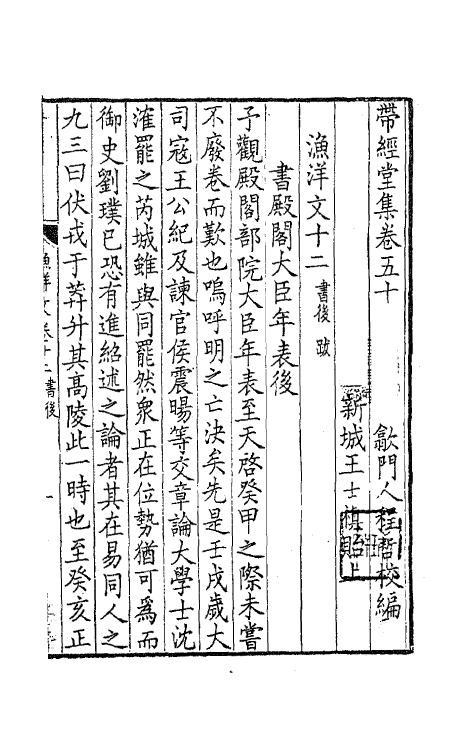 帶經堂集卷五十
歙門人程哲校編
新城王士禛貽上
漁洋文十二 書後 跋
書殿閣大臣年表後
予觀殿閣部院大臣年表至天啓癸甲之際未嘗
不廢卷而歎也嗚呼明之亡決矣先是壬戌歲大
司寇王公紀及諫官侯震暘等交章論大學士沈
㴶罷之芮城雖與同罷然衆正在位勢猶可爲而
御史劉璞已恐有進紹述之論者其在易同人之
九三曰伏戎于莽升其高陵此一時也至癸亥正
漁洋文卷十二 書後
一